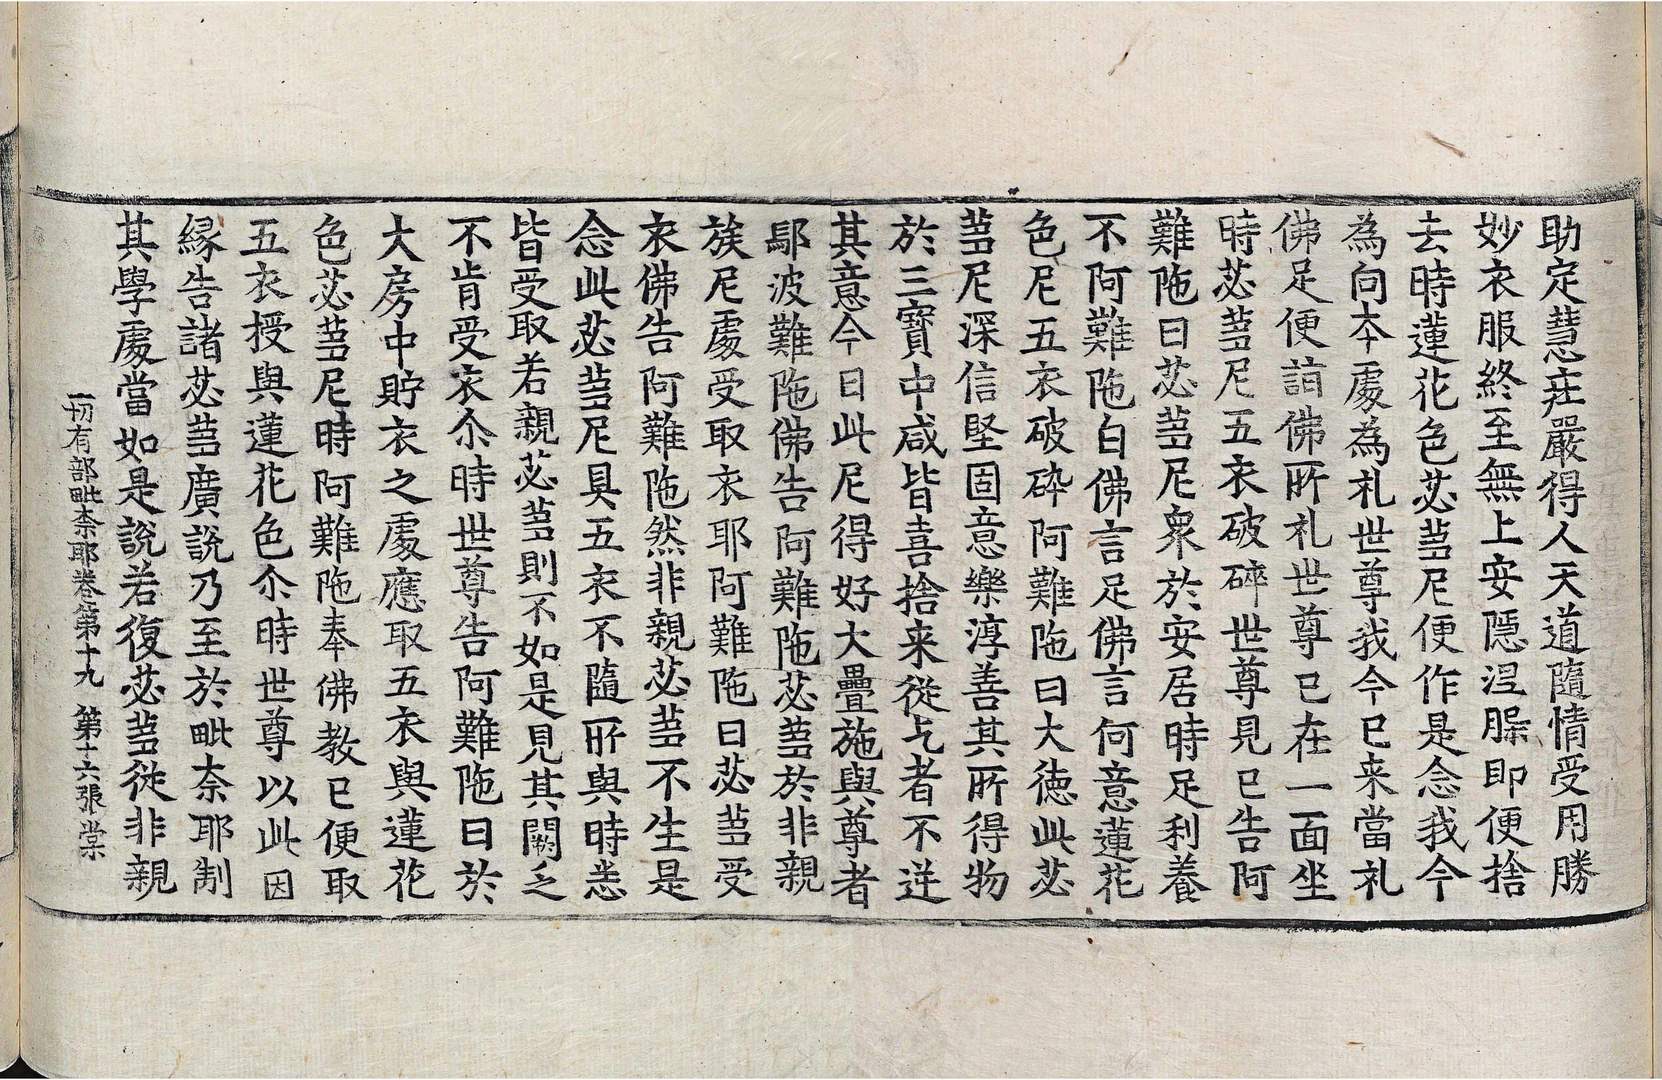 助定慧庄嚴得人天道隨情受用勝
妙衣服終至無上安隱涅槃即便捨
去時蓮花色苾芻尼便作是念我今
為向本處為礼世尊我今已来當礼
佛足便詣佛所礼世尊已在一面坐
時苾芻尼五衣破碎世尊見已告阿
難陁曰苾芻尼衆於安居時足利養
不阿難陁白佛言足佛言何意蓮花
色尼五衣破碎阿難陁曰大徳此苾
芻尼深信堅固意樂淳善其所得物
於三寶中咸皆喜捨来從乞者不逆
其意今日此尼得好大疊施與尊者
鄔波難陁佛告阿難陁苾芻於非親
族尼處受取衣耶阿難陁曰苾芻受
衣佛告阿難陁然非親苾芻不生是
念此苾芻尼具五衣不隨所與時悉
皆受取若親苾芻則不如是見其闕乏
不肯受衣尒時世尊告阿難陁曰於
大房中貯衣之處應取五衣與蓮花
色苾芻尼時阿難陁奉佛教已便取
五衣授與蓮花色尒時世尊以此因
縁告諸苾芻廣説乃至於毗奈耶制
其學處當如是説若復苾芻從非親
一切有部毗奈耶卷第十九 第十六張 棠